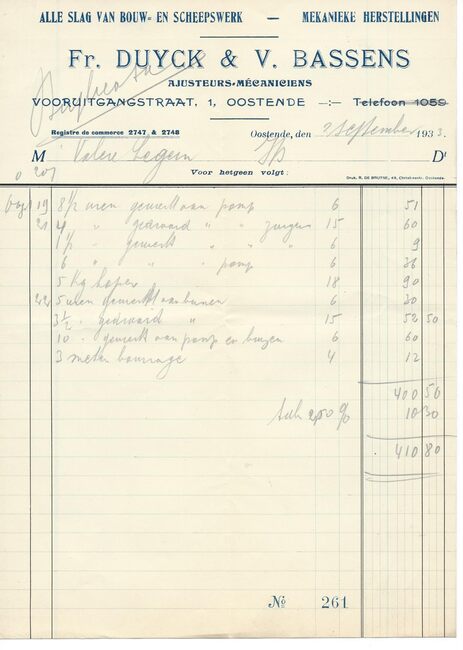 ALLE SLAG VAN BOUW- EN SCHEEPSWERK — MEKANIEKE HERSTELLINGEN
Fr. DUYCK & V. BASSENS
AJUSTEURS-MÉCANICIENS
VOORUITGANGSTRAAT, 1, OOSTENDE —:— Telefoon 1059
Registre de commerce 2747 & 2748
Oostende, den 2 September 1933.
M Valere Legein Dt
0 207
Voor hetgeen volgt:
Druk. R. DE BRUYNE, 49, Christinastr. Oostende.
19 8 1/2 uren gewerkt aan pomp 6 51
21 4 " gedraaid " " zuigers 15 60
1 1/2 " gewerk " " " 6 9
6 " " " pomp 6 36
5 Kg koper 18 90
22 5 uren gewerkt aan buizen 6 30
3 1/2 " gedraaid " 15 52 50
10 " gewerk aan pomp en buizen 6 60
3 meter bourrage 4 12
400 50
2,50 % 10 30
410 80
No 261